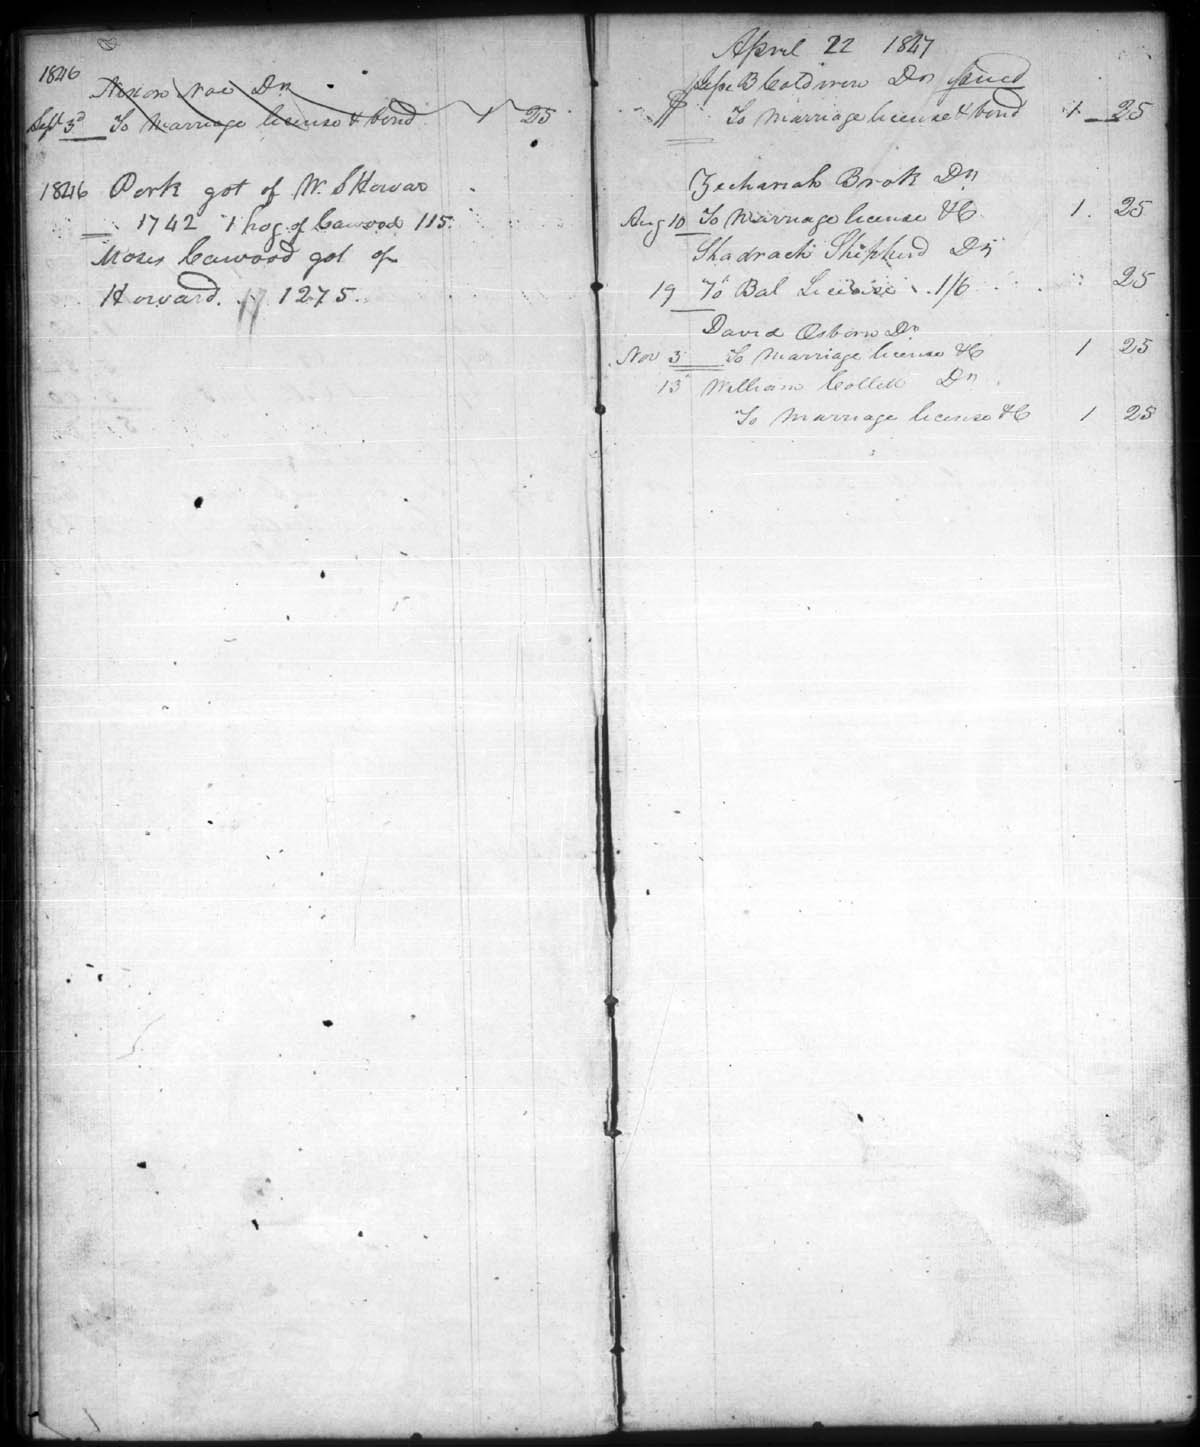 1846
Nixon Noe Dr
Sept 3d To Marriage license & bond 1 25
1846 Pork got of W. S Howard
1742 1 hog of Cawood 115.
Moses Cawood got of
Howard. 1275.
April 22 1847
Jesse B Coldiron Dr
To Marriage license & bond 1 25
Zechariah Brok Dr
Aug 10 To Marriage license &C 1. 25
Shadrach Shepherd Dr
19 To Bal License 1/6 25
David Osborn Dr
Nov 3 To Marriage license &C 1 25
13 William Collett Dr
To Marriage license &C 1 25